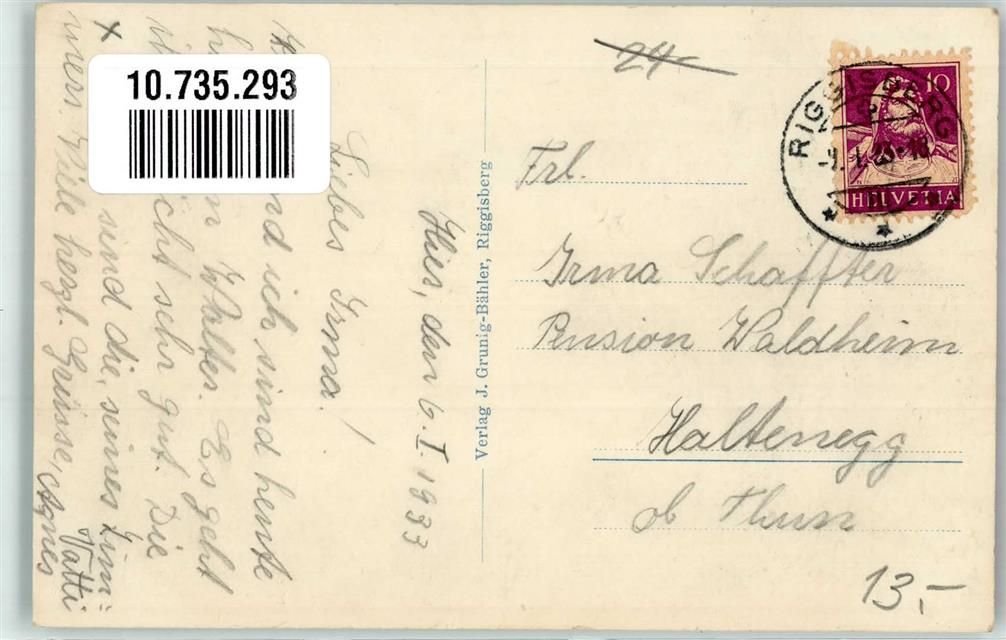 10.735.293
24.-
Hier, den 6. I. 1933
Liebes Irma!
und ich sind heute
Walter. Es geht
nicht sehr gut. Die
x sind die, seines Zim=
mers. Viele herzl. Grüsse,
Vatti
Agnes
Verlag J. Grunig-Bähler, Riggisberg
RIGGISBERG
10
HELVETIA
Frl.
Irma Schaffter
Pension Waldheim
Haltenegg
ob Thun
13.-